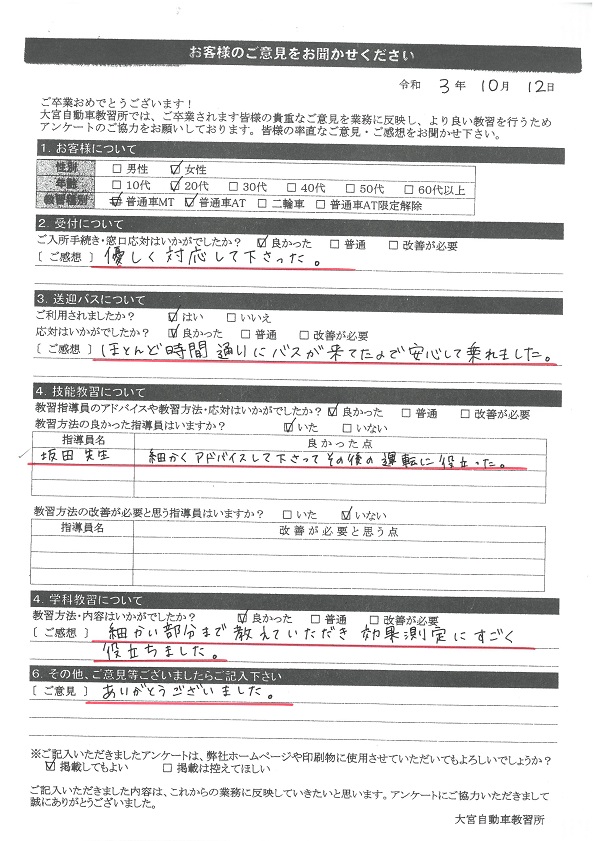 お客様のご意見をお聞かせください
令和 3 年 10 月 12 日
ご卒業おめでとうございます！
大宮自動車教習所では、ご卒業されます皆様の貴重なご意見を業務に反映し、より良い教習を行うため
アンケートのご協力をお願いしております。皆様の率直なご意見・ご感想をお聞かせ下さい。
1. お客様について
性別 □ 男性 ☑ 女性
年齢 □ 10代 ☑ 20代 □ 30代 □ 40代 □ 50代 □ 60代以上
教習種別 ☑ 普通車MT ☑ 普通車AT □ 二輪車 □ 普通車AT限定解除
2. 受付について
ご入所手続き・窓口応対はいかがでしたか？ ☑ 良かった □ 普通 □ 改善が必要
［ ご感想 ］ 優しく対応して下さった。
3. 送迎バスについて
ご利用されましたか？ ☑ はい □ いいえ
応対はいかがでしたか？ ☑ 良かった □ 普通 □ 改善が必要
［ ご感想 ］ ほとんど時間通りにバスが来てたので安心して乗れました。
4. 技能教習について
教習指導員のアドバイスや教習方法・応対はいかがでしたか？ ☑ 良かった □ 普通 □ 改善が必要
教習方法の良かった指導員はいますか？ ☑ いた □ いない
指導員名 良かった点
坂田先生 細かくアドバイスして下さってその後の運転に役立った。
教習方法の改善が必要と思う指導員はいますか？ □ いた ☑ いない
指導員名 改善が必要と思う点
4. 学科教習について
教習方法・内容はいかがでしたか？ ☑ 良かった □ 普通 □ 改善が必要
［ ご感想 ］ 細かい部分まで教えていただき効果測定にすごく
役立ちました。
6. その他、ご意見等ございましたらご記入下さい
［ ご意見 ］ ありがとうございました。
※ご記入いただきましたアンケートは、弊社ホームページや印刷物に使用させていただいてもよろしいでしょうか？
☑ 掲載してもよい □ 掲載は控えてほしい
ご記入いただきました内容は、これからの業務に反映していきたいと思います。アンケートにご協力いただきまして
誠にありがとうございました。
大宮自動車教習所